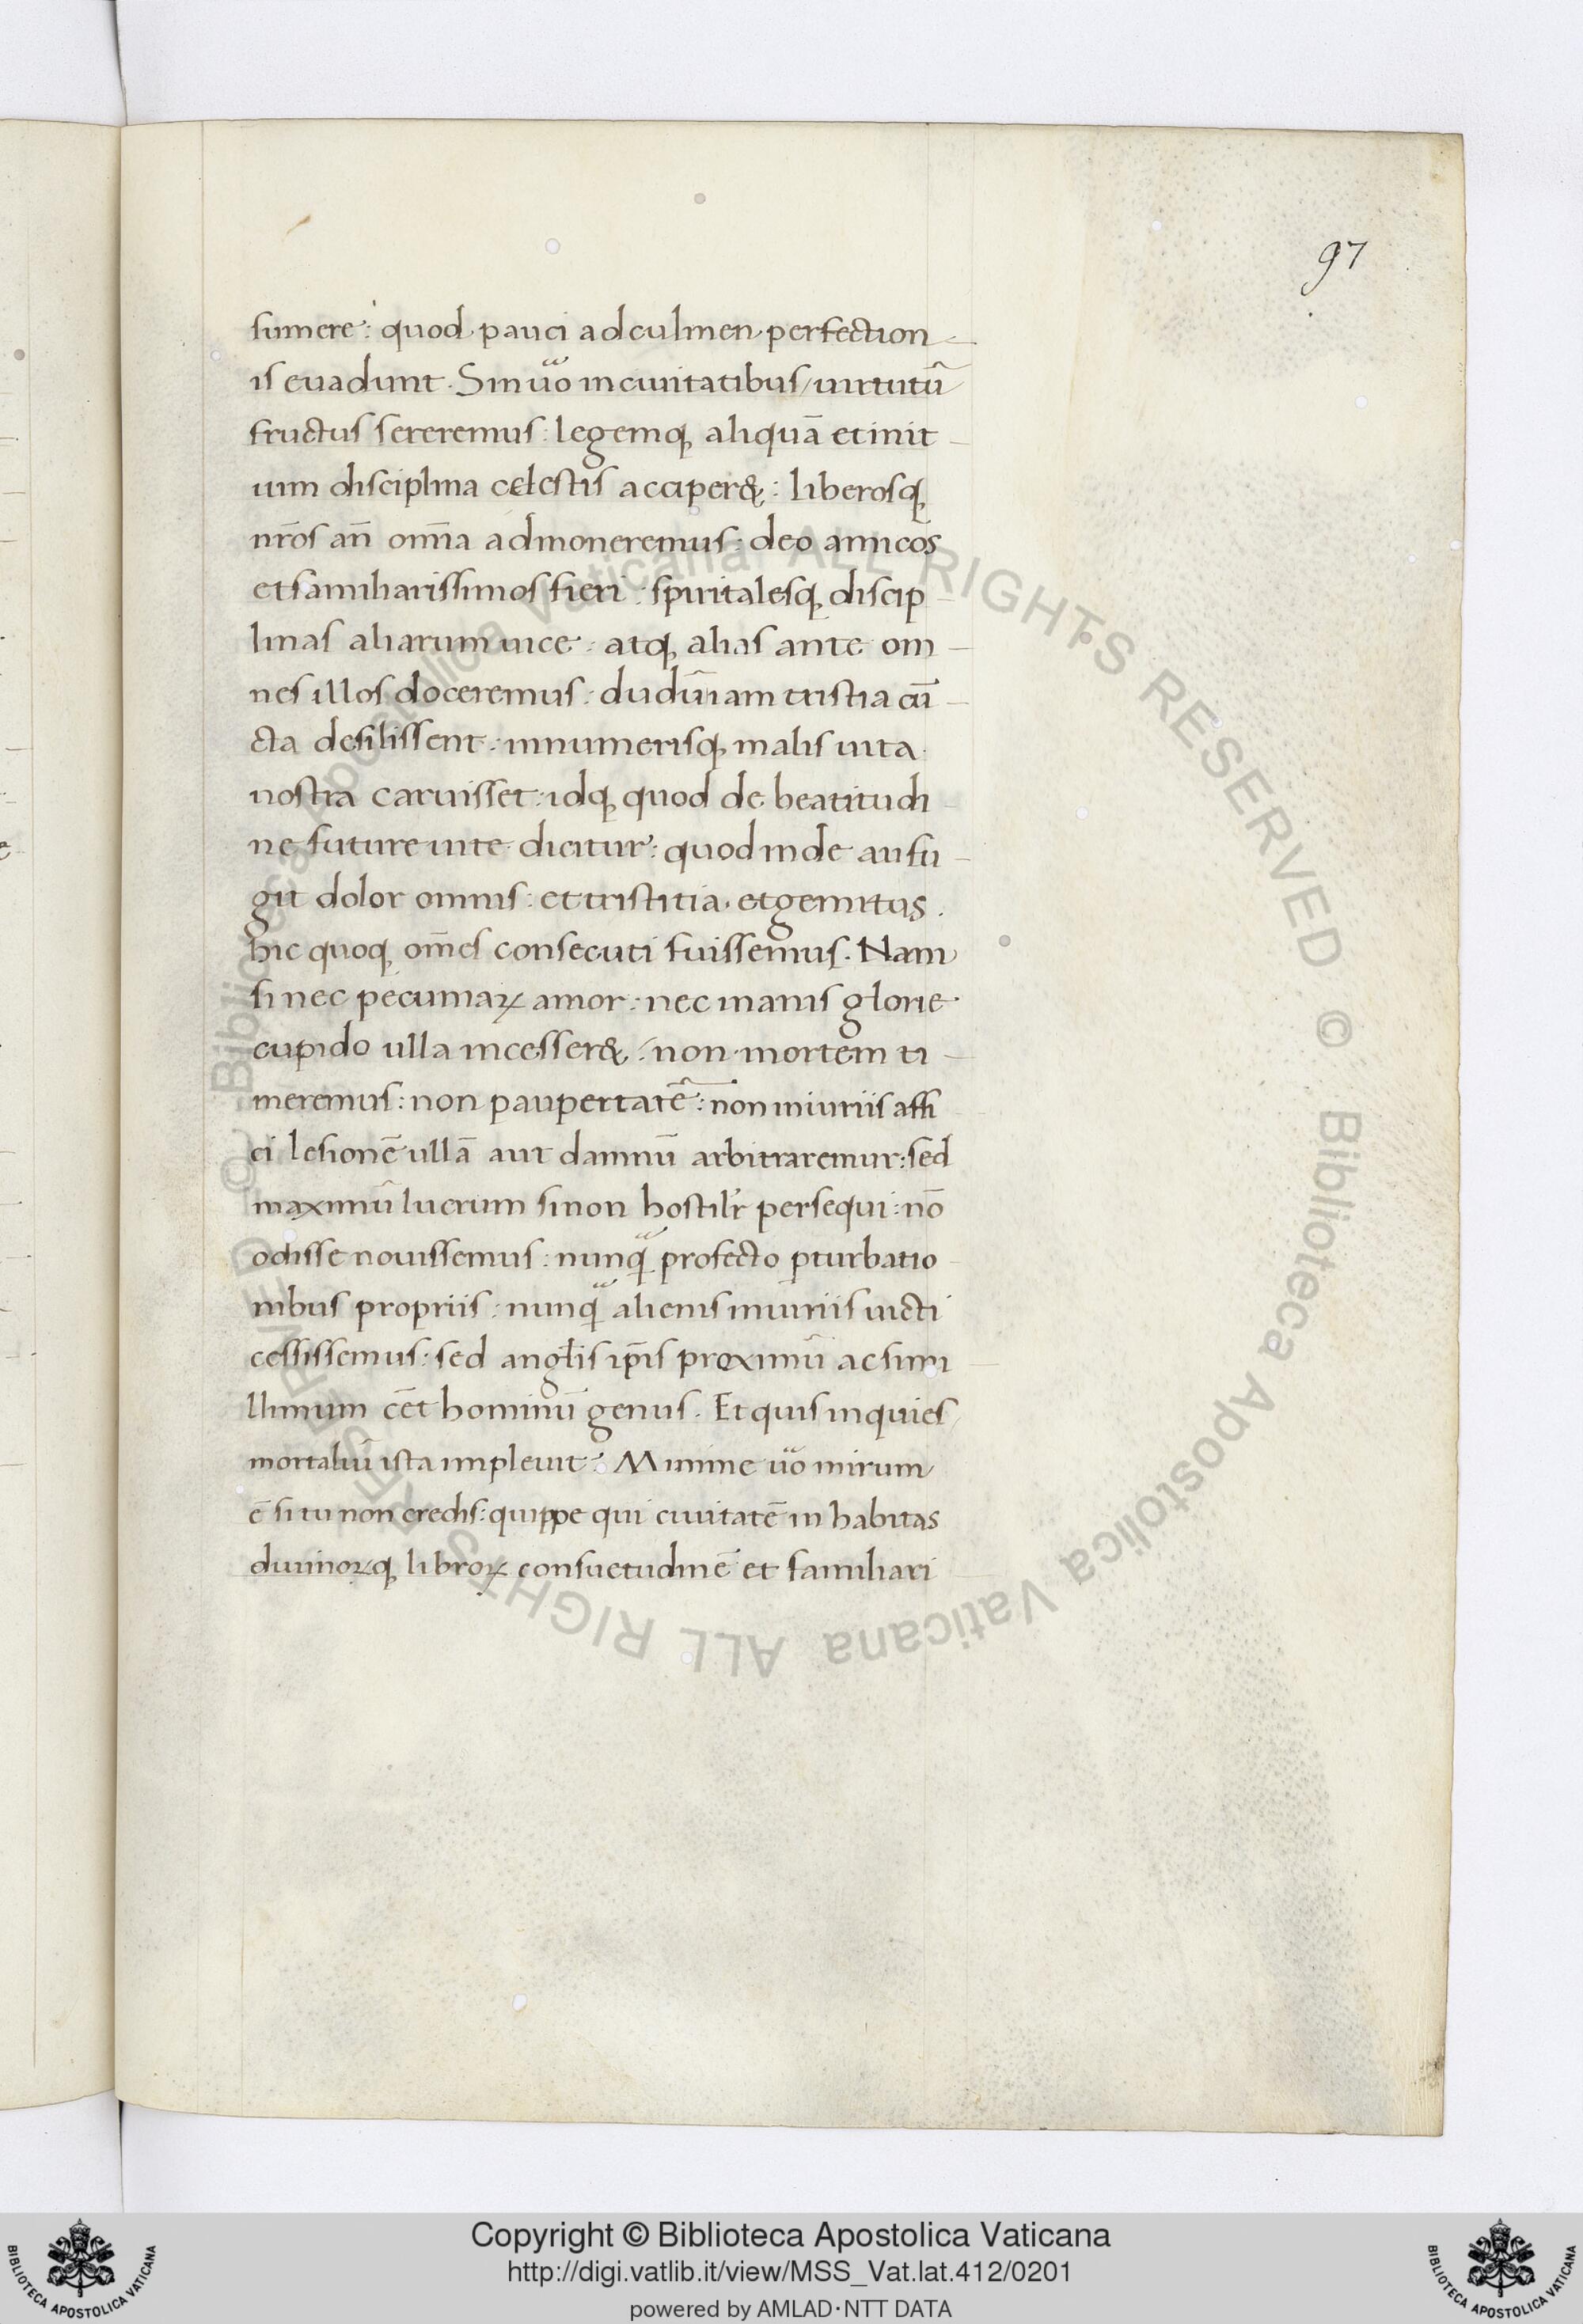 97
sumere: quod pauci ad culmen perfection
is euadunt. Sin uͣo in ciuitatibus uirtutū
fructus sereremus: legemq; aliquā et init
ium disciplina celestis acciper&: liberosq;
nr̄os an̄ om̄ia admoneremus: deo amicos
et familiarissimos fieri: spiritalesq; discip
linas aliarum uice: atq; alias ante om
nes illos doceremus: dudū iam tristia cū
cta desilissent: innumerisq; malis uita
nostra caruisset: idq; quod de beatitudi
ne future uite dicitur: quod inde aufu
git dolor omnis: et tristitia et gemitus.
hic quoq; om̄es consecuti fuissemus. Nam
si nec pecuniaꝝ amor: nec inanis glorie
cupido ulla incesser&: non mortem ti
meremus: non paupertatē: non iniuriis affi
ci lesionē ullā aut damnū arbitraremur: sed
maximū lucrum si non hostilr̄ persequi: nō
odisse nouissemus: nunqͣ profecto ꝑturbatio
nibus propriis: nunqͣ alienis iniuriis uicti
cessissemus: sed angl̄is ip̄is proximū ac simi
llimum cēt hominū genus. Et quis inquies
mortaliū ista impleuit? Minime uͦo mirum
ē si tu non credis: quippe qui ciuitatē in habitas
diuinoꝝq; libroꝝ consuetudinē et familiari
Copyright © Biblioteca Apostolica Vaticana
http://digi.vatlib.it/view/MSS_Vat.lat.412/0201
powered by AMLAD·NTT DATA
BIBLIOTECA APOSTOLICA VATICANA
BIBLIOTECA APOSTOLICA VATICANA
© Biblioteca Apostolica Vaticana ALL RIGHTS RESERVED © Biblioteca Apostolica Vaticana ALL RIGHTS RESERVED